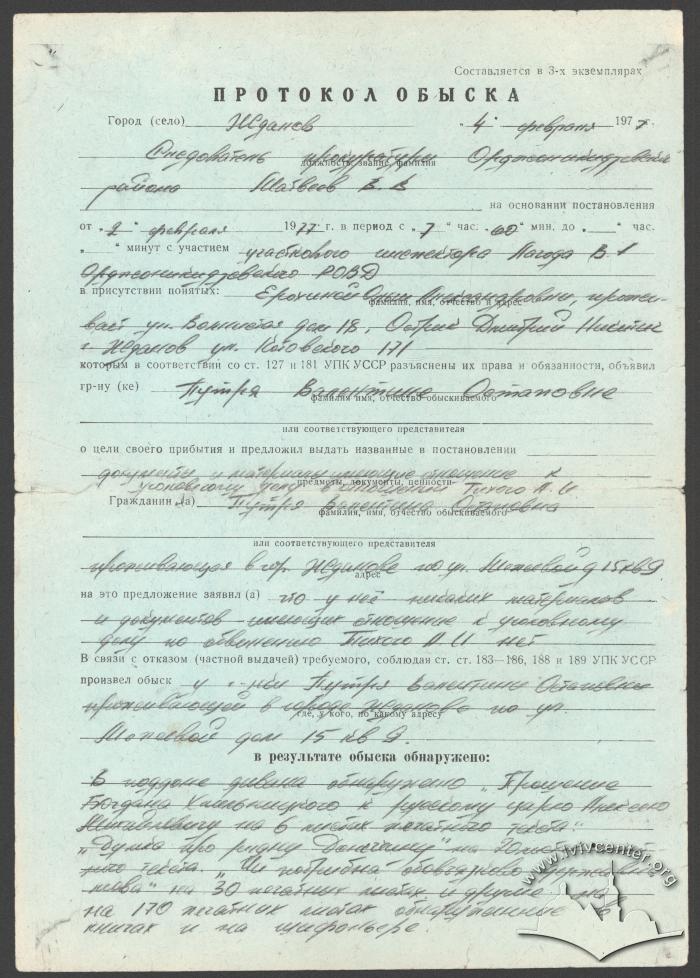 Составляется в 3-х экземплярах
ПРОТОКОЛ ОБЫСКА
Город (село) Жданов „4" февраля 1977 г.
Следователь прокуратуры Орджоникидзевского
должность, звание, фамилия
района Матвеев В. В
на основании постановления
от „2" февраля 1977 г. в период с „7" час. „00" мин. до „ " час.
„ " минут с участием участкового инспектора Лагода В
Орджоникидзевского РОВД
в присутствии понятых: Ерохиной Александровны, прожи-
фамилия, имя, отчество и адрес
вает ул. дом 18, Дмитрий Никитич
г Жданов ул. Котовского 171
которым в соответствии со ст. 127 и 181 УПК УССР разъяснены их права и обязанности, объявил
гр-ну (ке) Путря Валентине Остаповне
фамилия имя, отчество обыскиваемого
или соответствующего представителя
о цели своего прибытия и предложил выдать названные в постановлении
документы и материалы имеющие отношение к
предметы, документы, ценности
уголовному делу в отношении Тихого А. И
Гражданин (ка) Путря Валентина Остаповна
фамилия, имя, отчество обыскиваемого
или соответствующего представителя
проживающая в гор. Жданове по ул. д 15 кв 9
адрес
на это предложение заявил (а) что у неё никаких материалов
и документов имеющих отношение к уголовному
делу по обвинению Тихого А И нет
В связи с отказом (частной выдачей) требуемого, соблюдая ст. ст. 183—186, 188 и 189 УПК УССР
произвел обыск у Путря Валентины Остаповны
проживающей в городе Жданове по ул.
где, у кого, по какому адресу
дом 15 кв 9.
в результате обыска обнаружено:
В поддоне дивана обнаружено „Прошение
Богдана Хмельницкого к русскому царю Алексею
Михайловичу на 6 листах печатного текста".
„Думка про рідну Донеччину" на текста. „Чи потрібна
на 30 печатных листах и другие
на 170 печатных листах обнаруженные в
книгах и на шифоньере.
www.lvivcenter.org